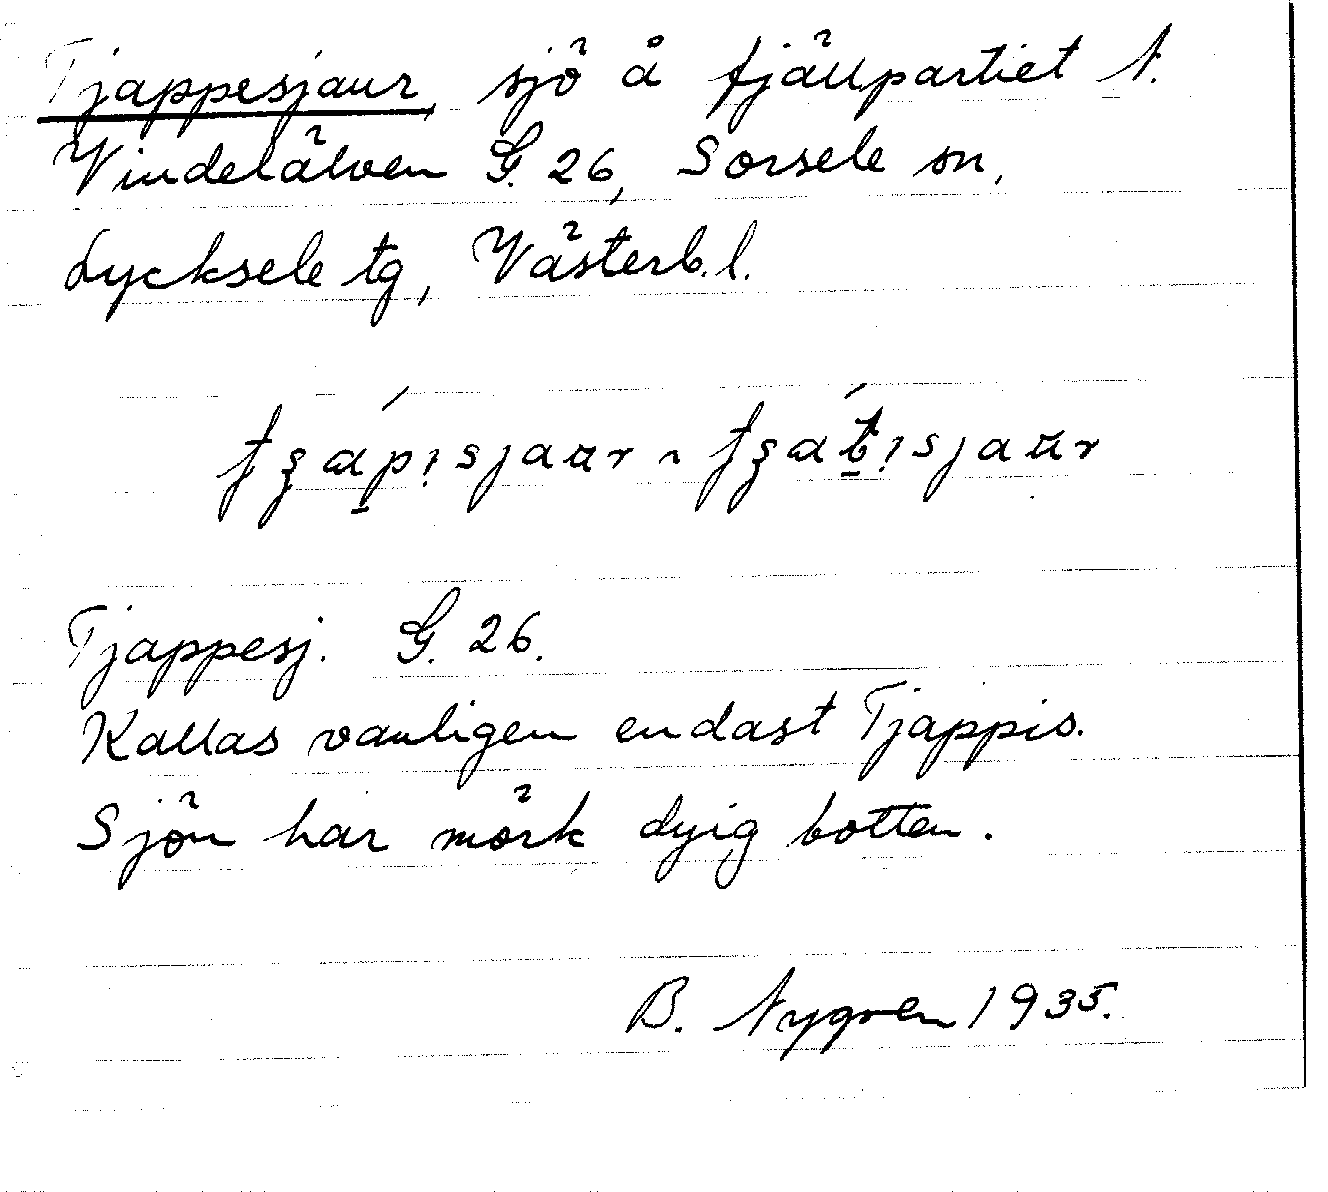 Tjappesjaur, sjö å fjällpartiet N.
Vindelälven G. 26, Sorsele sn,
Lycksele tg, Västerb. l.
Tjappesj. G. 26.
Kallas vanligen endast Tjappis.
Sjön har mörk dyig botten.
B. Nygren 1935.